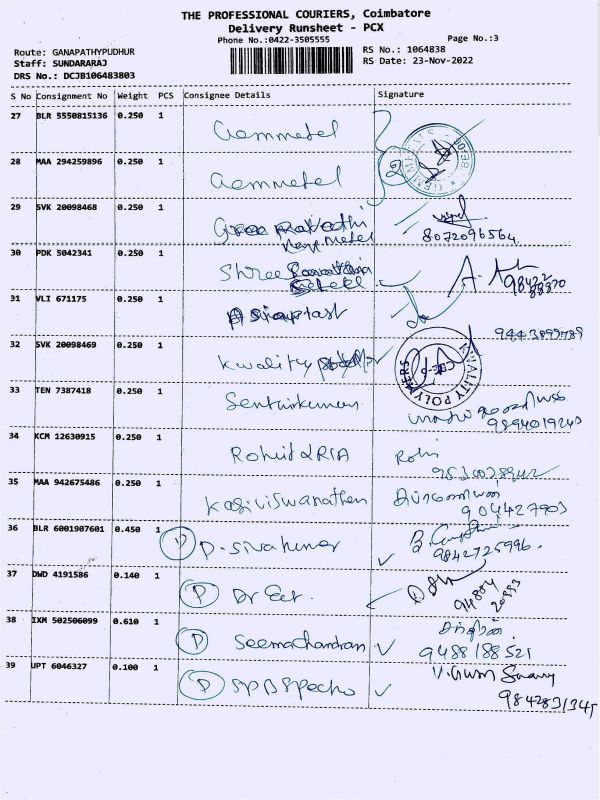 THE PROFESSIONAL COURIERS, Coimbatore
Delivery Runsheet - PCX
Phone No.:0422-3505555
Page No.:3
Route: GANAPATHYPUDHUR
Staff: SUNDARARAJ
DRS No.: DCJB106483803
RS No.: 1064838
RS Date: 23-Nov-2022
S No Consignment No Weight PCS Consignee Details Signature
27 BLR 5550815136 0.250 1 Gemmetel
28 MAA 294259896 0.250 1 Gemmetel 2
29 SVK 20098468 0.250 1
8072096564
30 PDK 5042341 0.250 1 Shree
31 VLI 671175 0.250 1
9443899789
32 SVK 20098469 0.250 1 Kwality
KWALITY POLYMERS
33 TEN 7387418 0.250 1 Senthilkumar
9894019243
34 KCM 12630915 0.250 1 Rohid & RIA Rohi
35 MAA 942675486 0.250 1 Kasiviswanathan
904427903
36 BLR 6001907601 0.450 1 D D-Sivakumar
9842725996
37 DWD 4191586 0.140 1 D
38 IXM 502506099 0.610 1 D Seemachandran
9488188521
39 UPT 6046327 0.100 1 D SPB Specho
9842831345